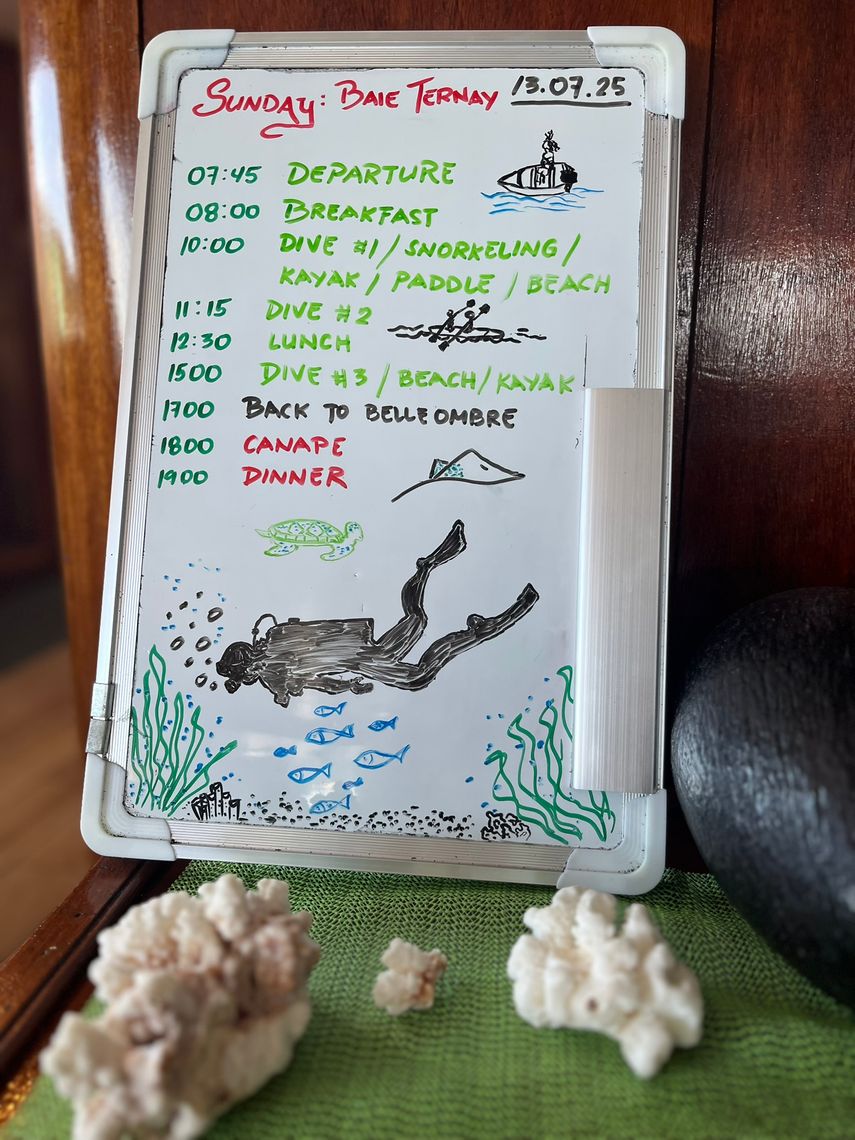 SUNDAY: BAIE TERNAY 13.07.25
07:45 DEPARTURE
08:00 BREAKFAST
10:00 DIVE #1 / SNORKELING /
KAYAK / PADDLE / BEACH
11:15 DIVE #2
12:30 LUNCH
1500 DIVE #3 / BEACH / KAYAK
1700 BACK TO BELLE OMBRE
1800 CANAPE
1900 DINNER